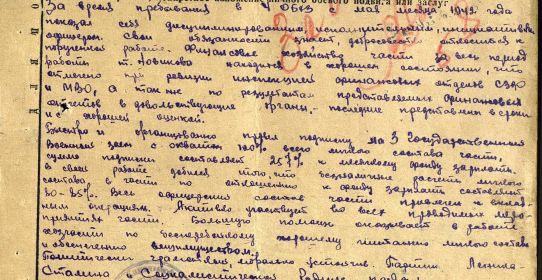 боевого подвига или заслуг
За время пребывания в ОБАО с мая месяца 1942 года
показал себя дисциплинированным, исполнительным, инициативным
офицером. Свои обязанности знает, добросовестно относится к
порученной работе. Финансовое хозяйство части за весь период
работы т. находится в хорошем состоянии, что
отмечено при ревизии инспекцией финансовых отделов
и МВО, а так же по результатам представляемых финансовых
отчетов в довольствующие органы, - последние представлены в срок
и с хорошей оценкой.
Быстро и организованно провел подписку на 3 Государственный
Военный заем с охватом 100% всего личного состава части,
сумма подписки составляет 257% к месячному фонду зарплаты.
в своей работе добился того, что безналичные расчеты личного
состава в части по отношению к фонду зарплаты составляют
80-85%. Весь офицерский состав части привлечен к вклад-
ным операциям. Активно участвует во всех проводимых меро-
приятиях части. Большую помощь оказывает в работе
хозчасти по бесперебойному хорошему питанию личного состава
и обеспечению вещимуществом.
Политически грамотен, морально устойчив. Партии Ленина-
Сталина и Социалистической Родине